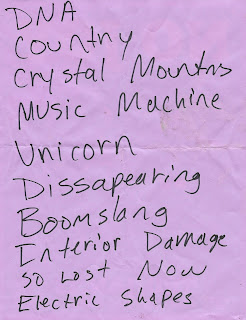 DNA
Country
Crystal Mountns
Music Machine
Unicorn
Dissapearing
Boomslang
Interior Damage
So Lost Now
Electric Shapes